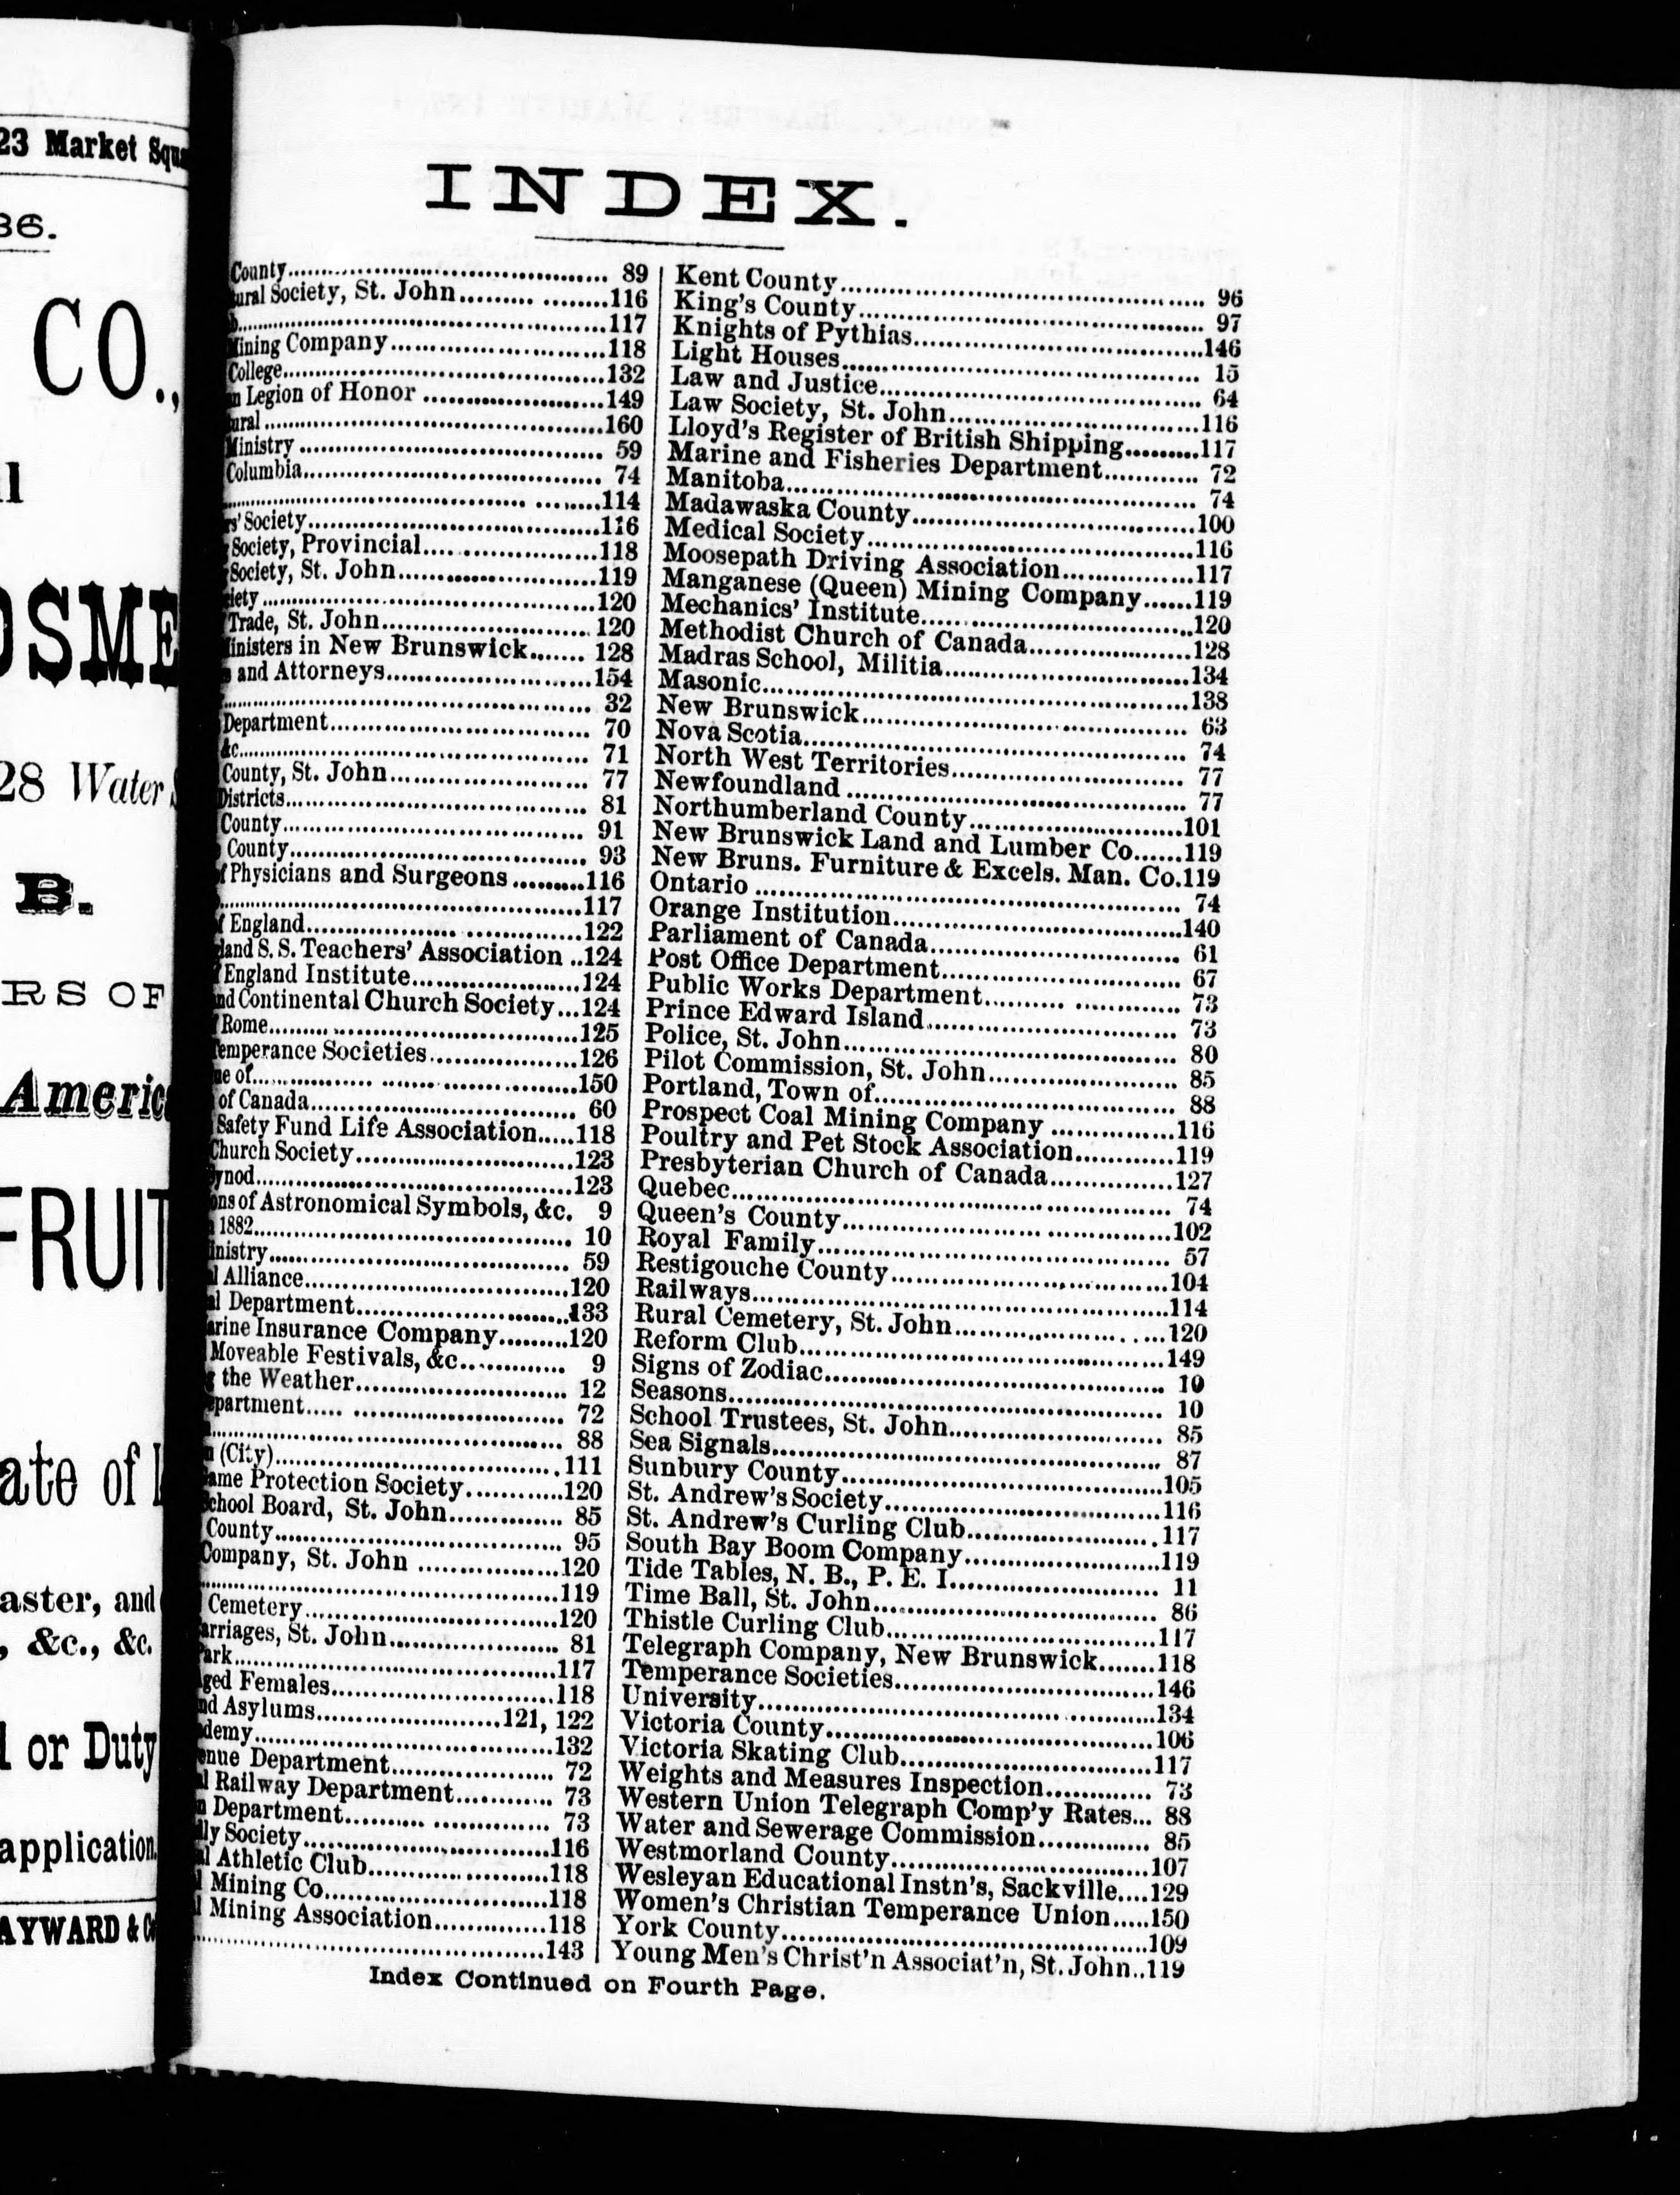 23 Market
36.
CO.,
28 Water
B.
RS OF
Americ
FRUIT
ate of
aster, and
, &c., &c.
or Duty
application.
AYWARD & Co
INDEX.
County 89
Society, St. John 116
117
Mining Company 118
College 132
Legion of Honor 149
160
Ministry 59
Columbia 74
114
Society 116
Society, Provincial 118
Society, St. John 119
120
Trade, St. John 120
Ministers in New Brunswick 128
and Attorneys 154
32
Department 70
&c 71
County, St. John 77
Districts 81
County 91
County 93
Physicians and Surgeons 116
117
England 122
S. S. Teachers' Association 124
England Institute 124
Continental Church Society 124
Rome 125
Temperance Societies 126
of 150
of Canada 60
Safety Fund Life Association 118
Church Society 123
Synod 123
of Astronomical Symbols, &c. 9
1882 10
59
Alliance 120
Department 133
Insurance Company 120
Moveable Festivals, &c 9
the Weather 12
72
88
(City) 111
Protection Society 120
School Board, St. John 85
County 95
Company, St. John 120
119
Cemetery 120
St. John 81
Park 117
Females 118
Asylums 121, 122
132
Department 72
Railway Department 73
Department 73
Society 116
Athletic Club 118
Mining Co 118
Mining Association 118
143
Kent County 96
King's County 97
Knights of Pythias 146
Light Houses 15
Law and Justice 64
Law Society, St. John 116
Lloyd's Register of British Shipping 117
Marine and Fisheries Department 72
Manitoba 74
Madawaska County 100
Medical Society 116
Moosepath Driving Association 117
Manganese (Queen) Mining Company 119
Mechanics' Institute 120
Methodist Church of Canada 128
Madras School, Militia 134
Masonic 138
New Brunswick 63
Nova Scotia 74
North West Territories 77
Newfoundland 77
Northumberland County 101
New Brunswick Land and Lumber Co 119
New Bruns. Furniture & Excels. Man. Co. 119
Ontario 74
Orange Institution 140
Parliament of Canada 61
Post Office Department 67
Public Works Department 73
Prince Edward Island 73
Police, St. John 80
Pilot Commission, St. John 85
Portland, Town of 88
Prospect Coal Mining Company 116
Poultry and Pet Stock Association 119
Presbyterian Church of Canada 127
Quebec 74
Queen's County 102
Royal Family 57
Restigouche County 104
Railways 114
Rural Cemetery, St. John 120
Reform Club 149
Signs of Zodiac 10
Seasons 10
School Trustees, St. John 85
Sea Signals 87
Sunbury County 105
St. Andrew's Society 116
St. Andrew's Curling Club 117
South Bay Boom Company 119
Tide Tables, N. B., P. E. I 11
Time Ball, St. John 86
Thistle Curling Club 117
Telegraph Company, New Brunswick 118
Temperance Societies 146
University 134
Victoria County 106
Victoria Skating Club 117
Weights and Measures Inspection 73
Western Union Telegraph Comp'y Rates 88
Water and Sewerage Commission 85
Westmorland County 107
Wesleyan Educational Instn's, Sackville 129
Women's Christian Temperance Union 150
York County 109
Young Men's Christ'n Associat'n, St. John 119
Index Continued on Fourth Page.